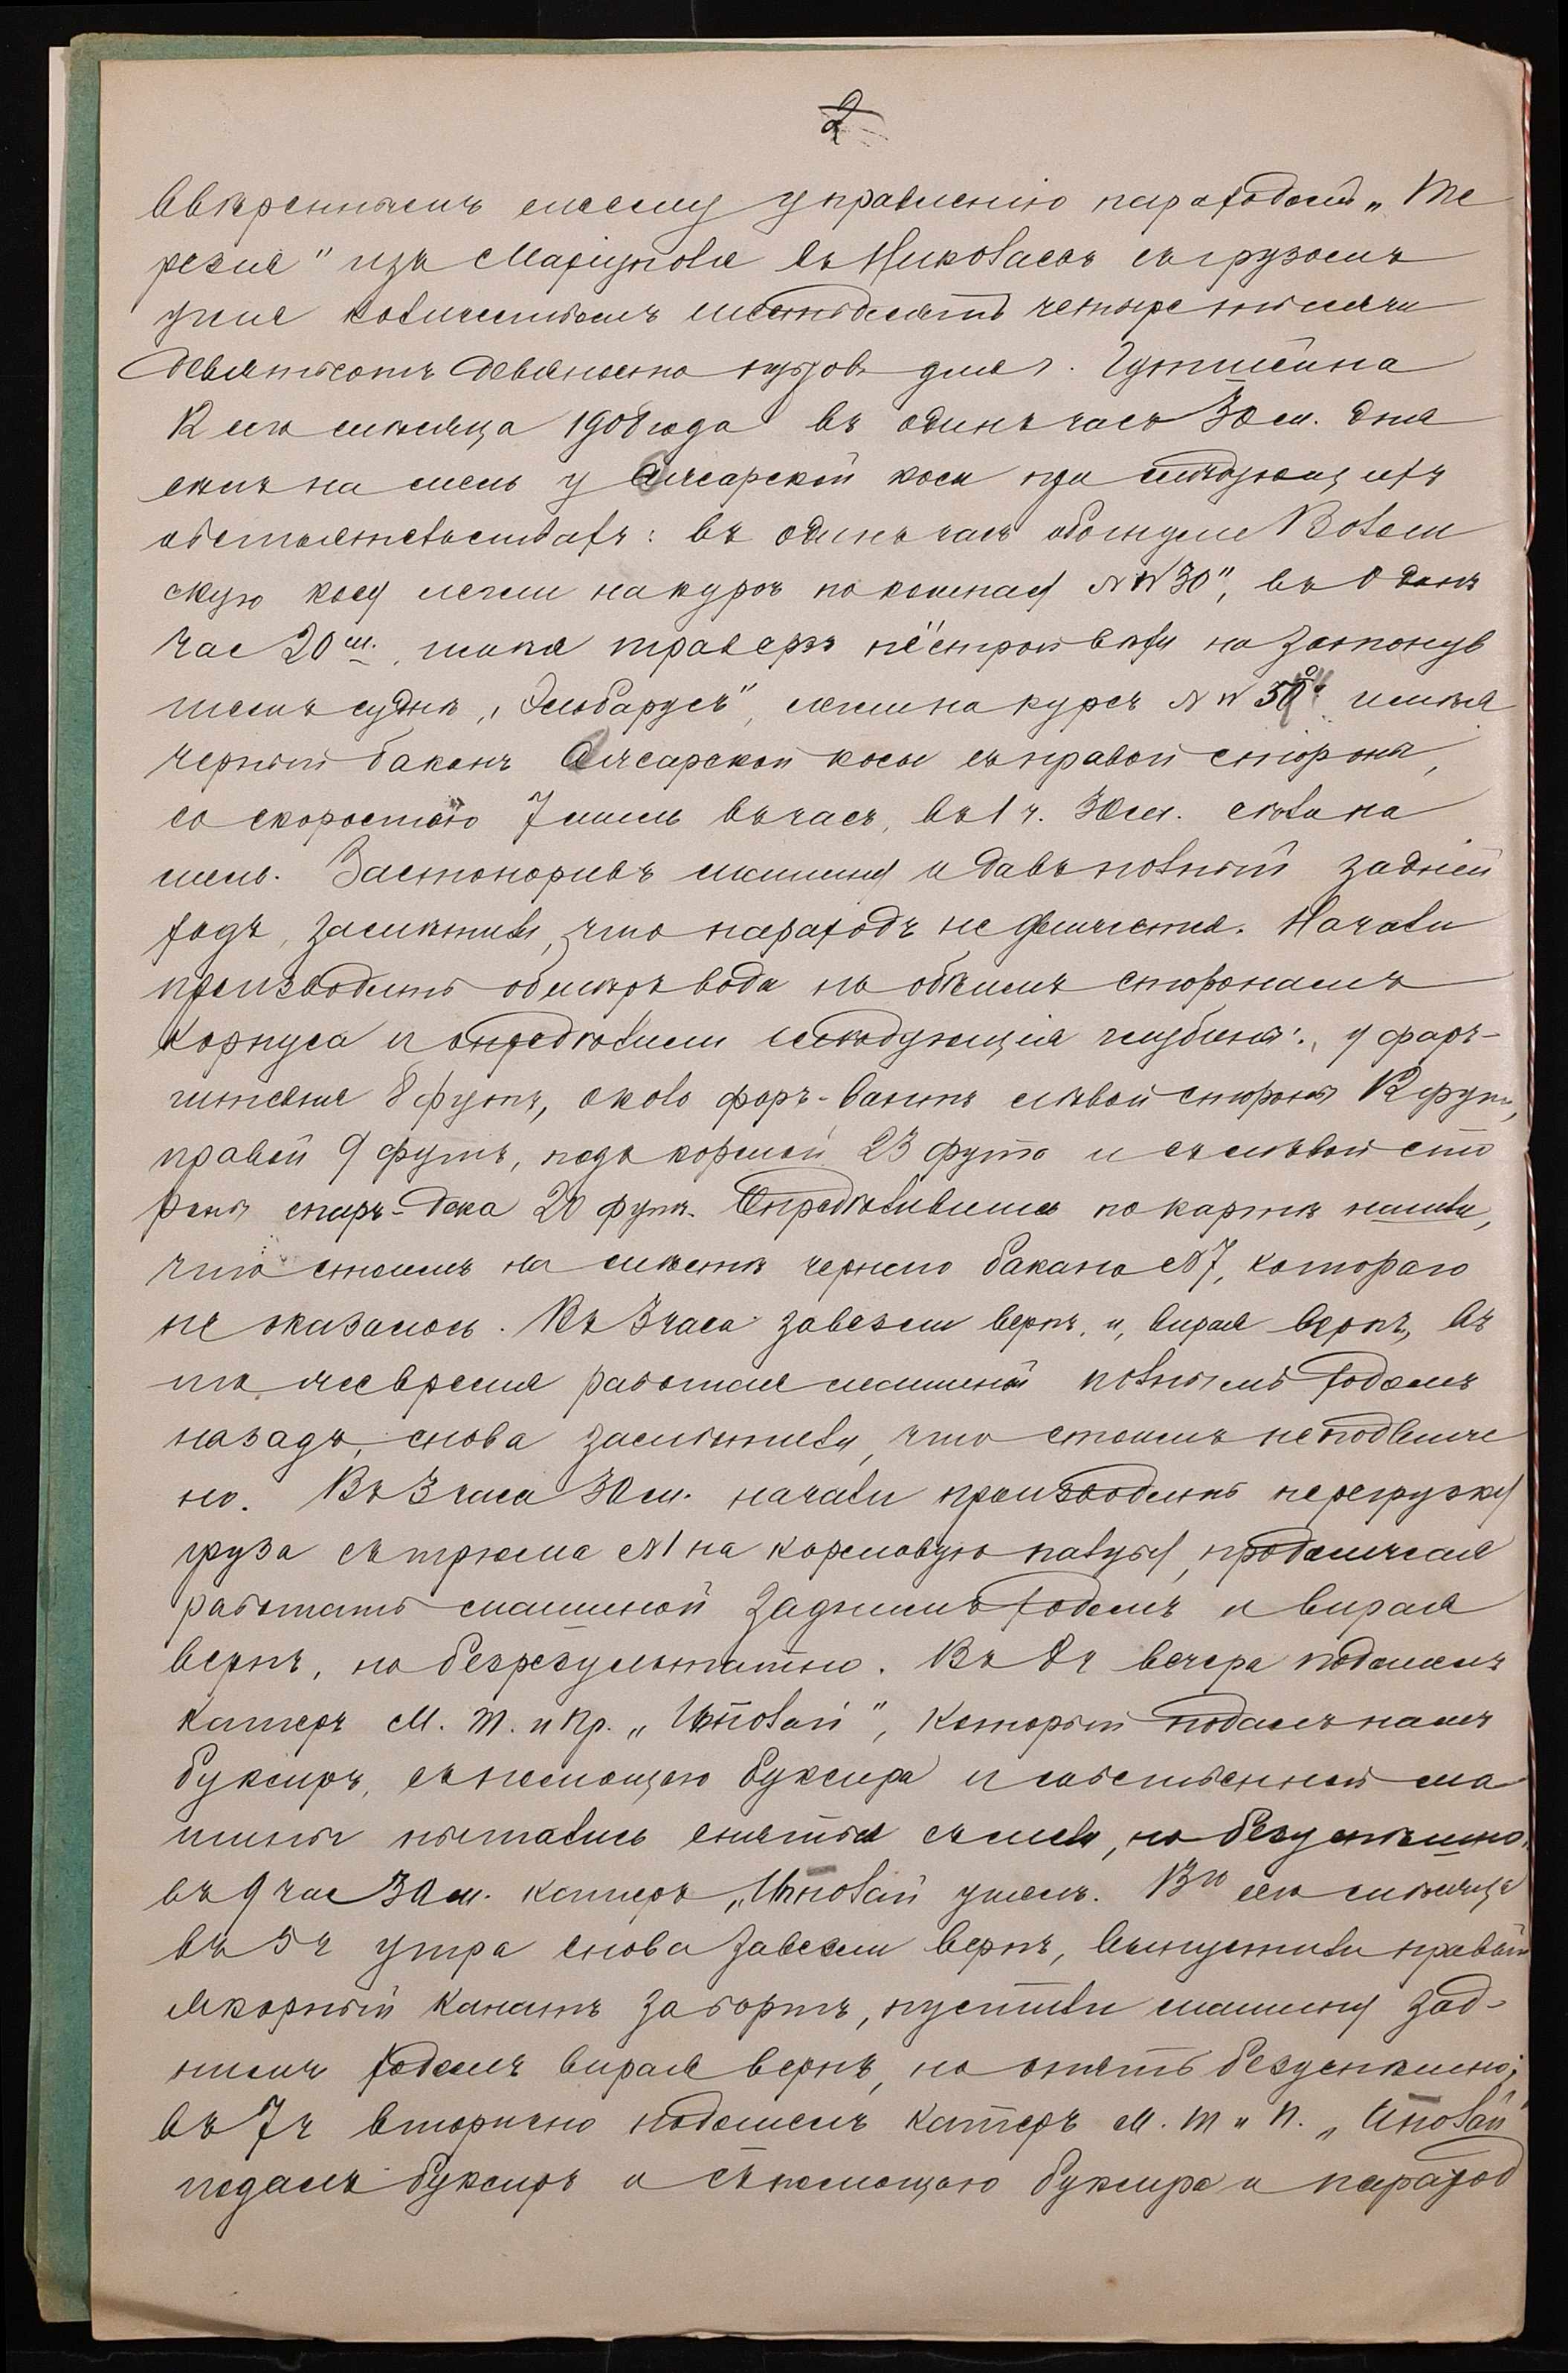 2
ввѣренныемъ моему управленію пароходомъ „Те
резіа" изъ Маріуполя въ Николаевъ съ грузомъ
угля количествомъ шестьдесятъ четыре тысячи
девятьсотъ девяносто пудовъ для г.
12 сего мѣсяца 1908 года въ одинъ часъ 30 м. дня
сѣлъ на мель у Аджарской косы при слѣдующихъ
обстоятельствахъ: въ одинъ часъ обогнули Волж
скую косу легли на курсъ по компасу NW 30°, въ одинъ
час 20 м. имѣя траверзъ пёстрой вѣхи на затонув
шемъ суднѣ „Эльборусъ", легли на курсъ NW 50° имѣя
черный баканъ Аджарской косы съ правой стороны,
со скоростью 7 миль въ часъ, въ 1 ч. 30 м. сѣли на
мель. Застопоривъ машину и давъ полный задній
ходъ, замѣтили, что пароходъ не движется. Начали
производить обмѣръ воды по обѣимъ сторонамъ
корпуса и опредѣлили слѣдующія глубины: у форъ-
штевня 8 футъ, около форъ-вантъ лѣвой стороны 12 футъ,
правой 9 футъ, подъ кормой 23 фута и съ лѣвой сто
роны спаръ-дека 20 футъ. Опредѣлившись по картѣ нашли,
что стоимъ на мѣстѣ чернаго бакана №7, котораго
не оказалось. Въ 3 часа завезли верпъ, и, вирая верпъ, въ
то же время работая машиной полнымъ ходомъ
назадъ, снова замѣтили, что стоимъ неподвиж
но. Въ 3 часа 30 м. начали производить перегрузку
груза съ трюма №1 на кормовую палубу, продолжая
работать машиной заднимъ ходомъ и вирая
верпъ, но безрезультатно. Въ 8 ч вечера подошелъ
катеръ М. Т. и Пр. „Ипполай", который подалъ намъ
буксиръ, съ помощью буксира и собственной ма
шины пытались сняться съ мели, но безуспѣшно.
въ 9 час 30 м. катеръ „Ипполай ушелъ. 13го сего мѣсяца
въ 5 ч утра снова завезли верпъ, выпустили правый
якорный канатъ за бортъ, пустили машину зад-
нимъ ходомъ вирая верпъ, но опять безуспѣшно;
въ 7 ч вторично подошелъ катеръ М. Т и П. „Ипполай"
подалъ буксиръ и съ помощью буксира и пароход